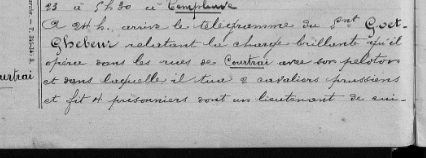 23 à 5h30 à Templeuve
A 24 h. arrive le télégramme du Snt Goet-
Ghebeur relatant la charge brillante qu'il
opéra dans les rues de Courtrai avec son peloton
et dans laquelle il tua 2 cavaliers prussiens
et fit 4 prisonniers dont un lieutenant de cui-
Courtrai